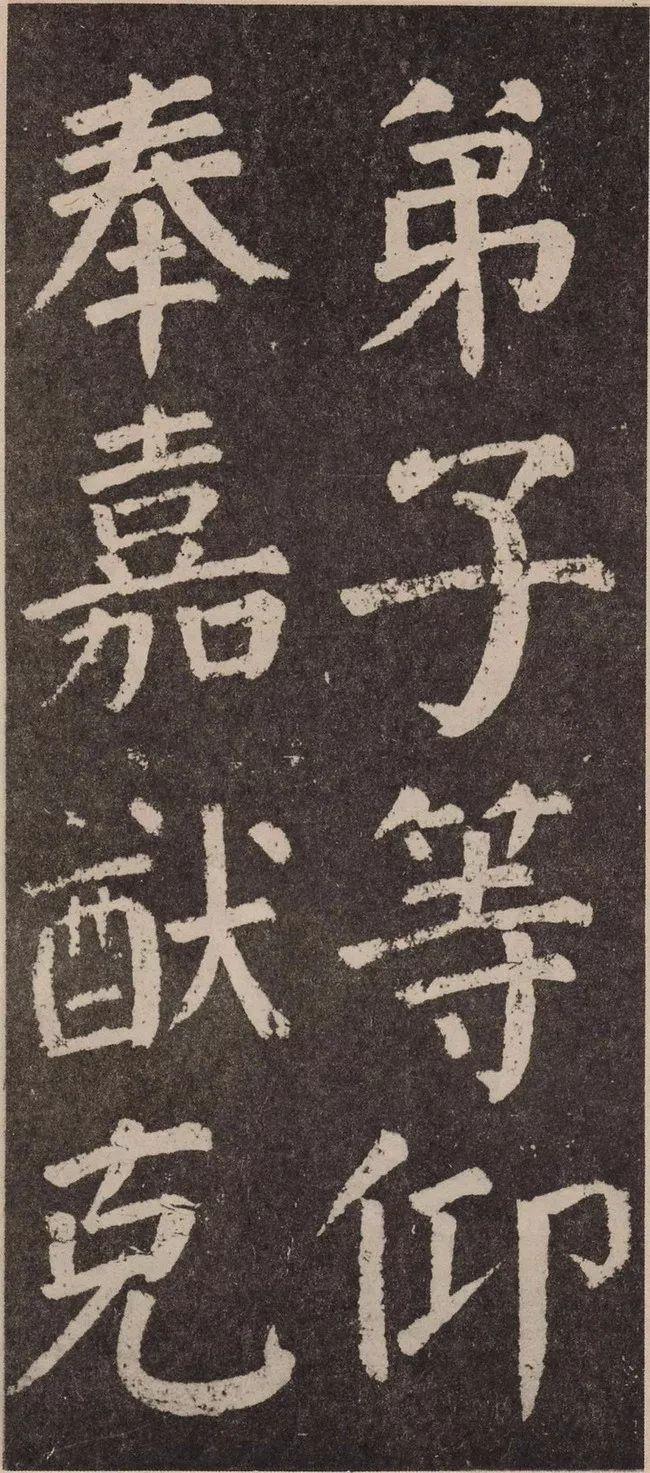 弟子等仰
奉嘉猷克